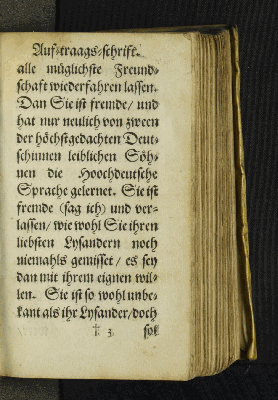 Auf-traags-schrift.
alle müglichste Freund-
schaft wiederfahren lassen.
Dan Sie ist fremde/ und
hat nur neulich von zween
der höchstgedachten Deut-
schinnen leiblichen Söh-
nen die Hoochdeutsche
Sprache gelernet. Sie ist
fremde (sag ich) und ver-
lassen/ wie wohl Sie ihren
liebsten Lysandern noch
niemahls gemisset/ es sey
dan mit ihrem eignen wil-
len. Sie ist so wohl unbe-
kant als ihr Lysander/doch
† 3 sol